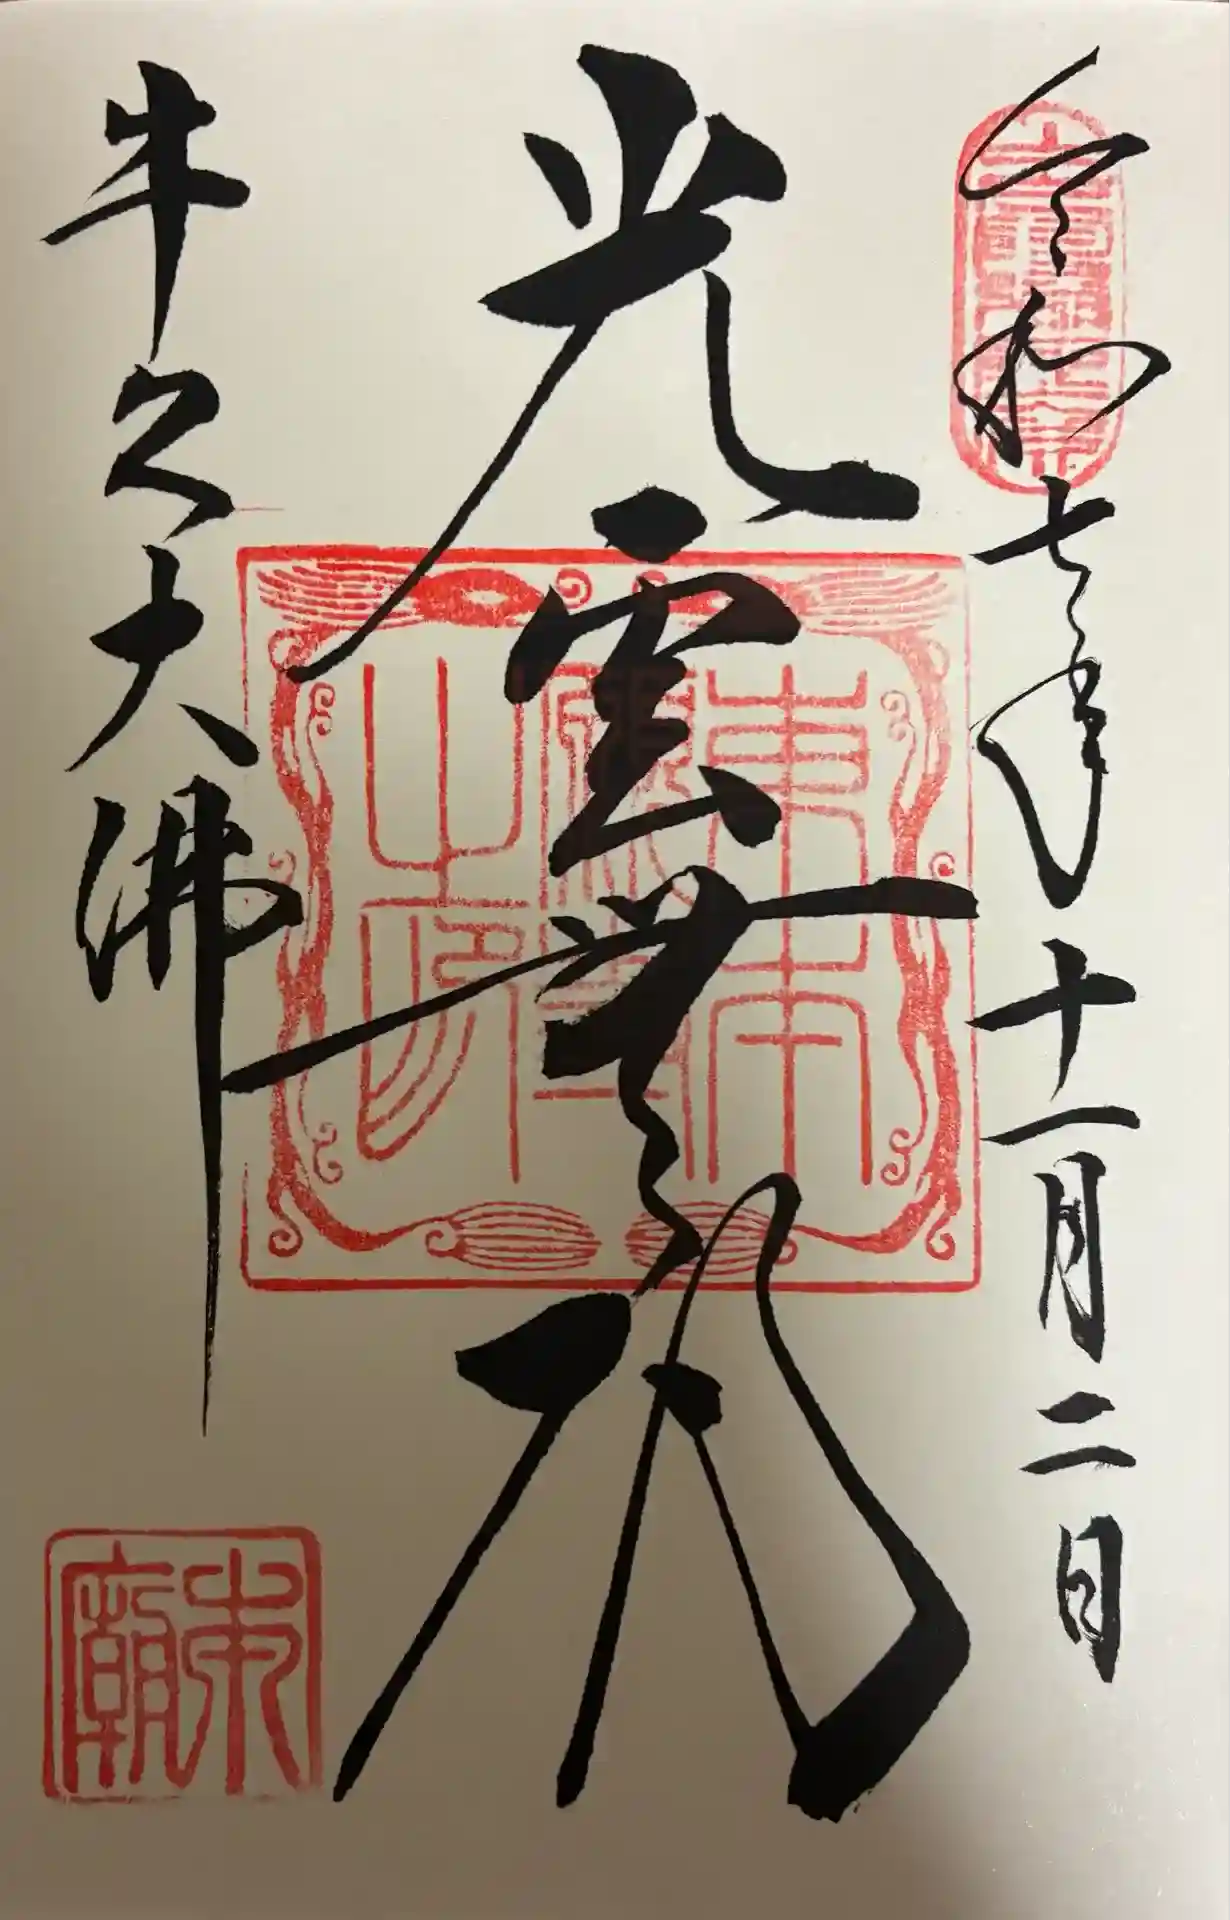 令和七年十一月二日
光雲無礙
牛久大佛
東本
願
之印
東廟